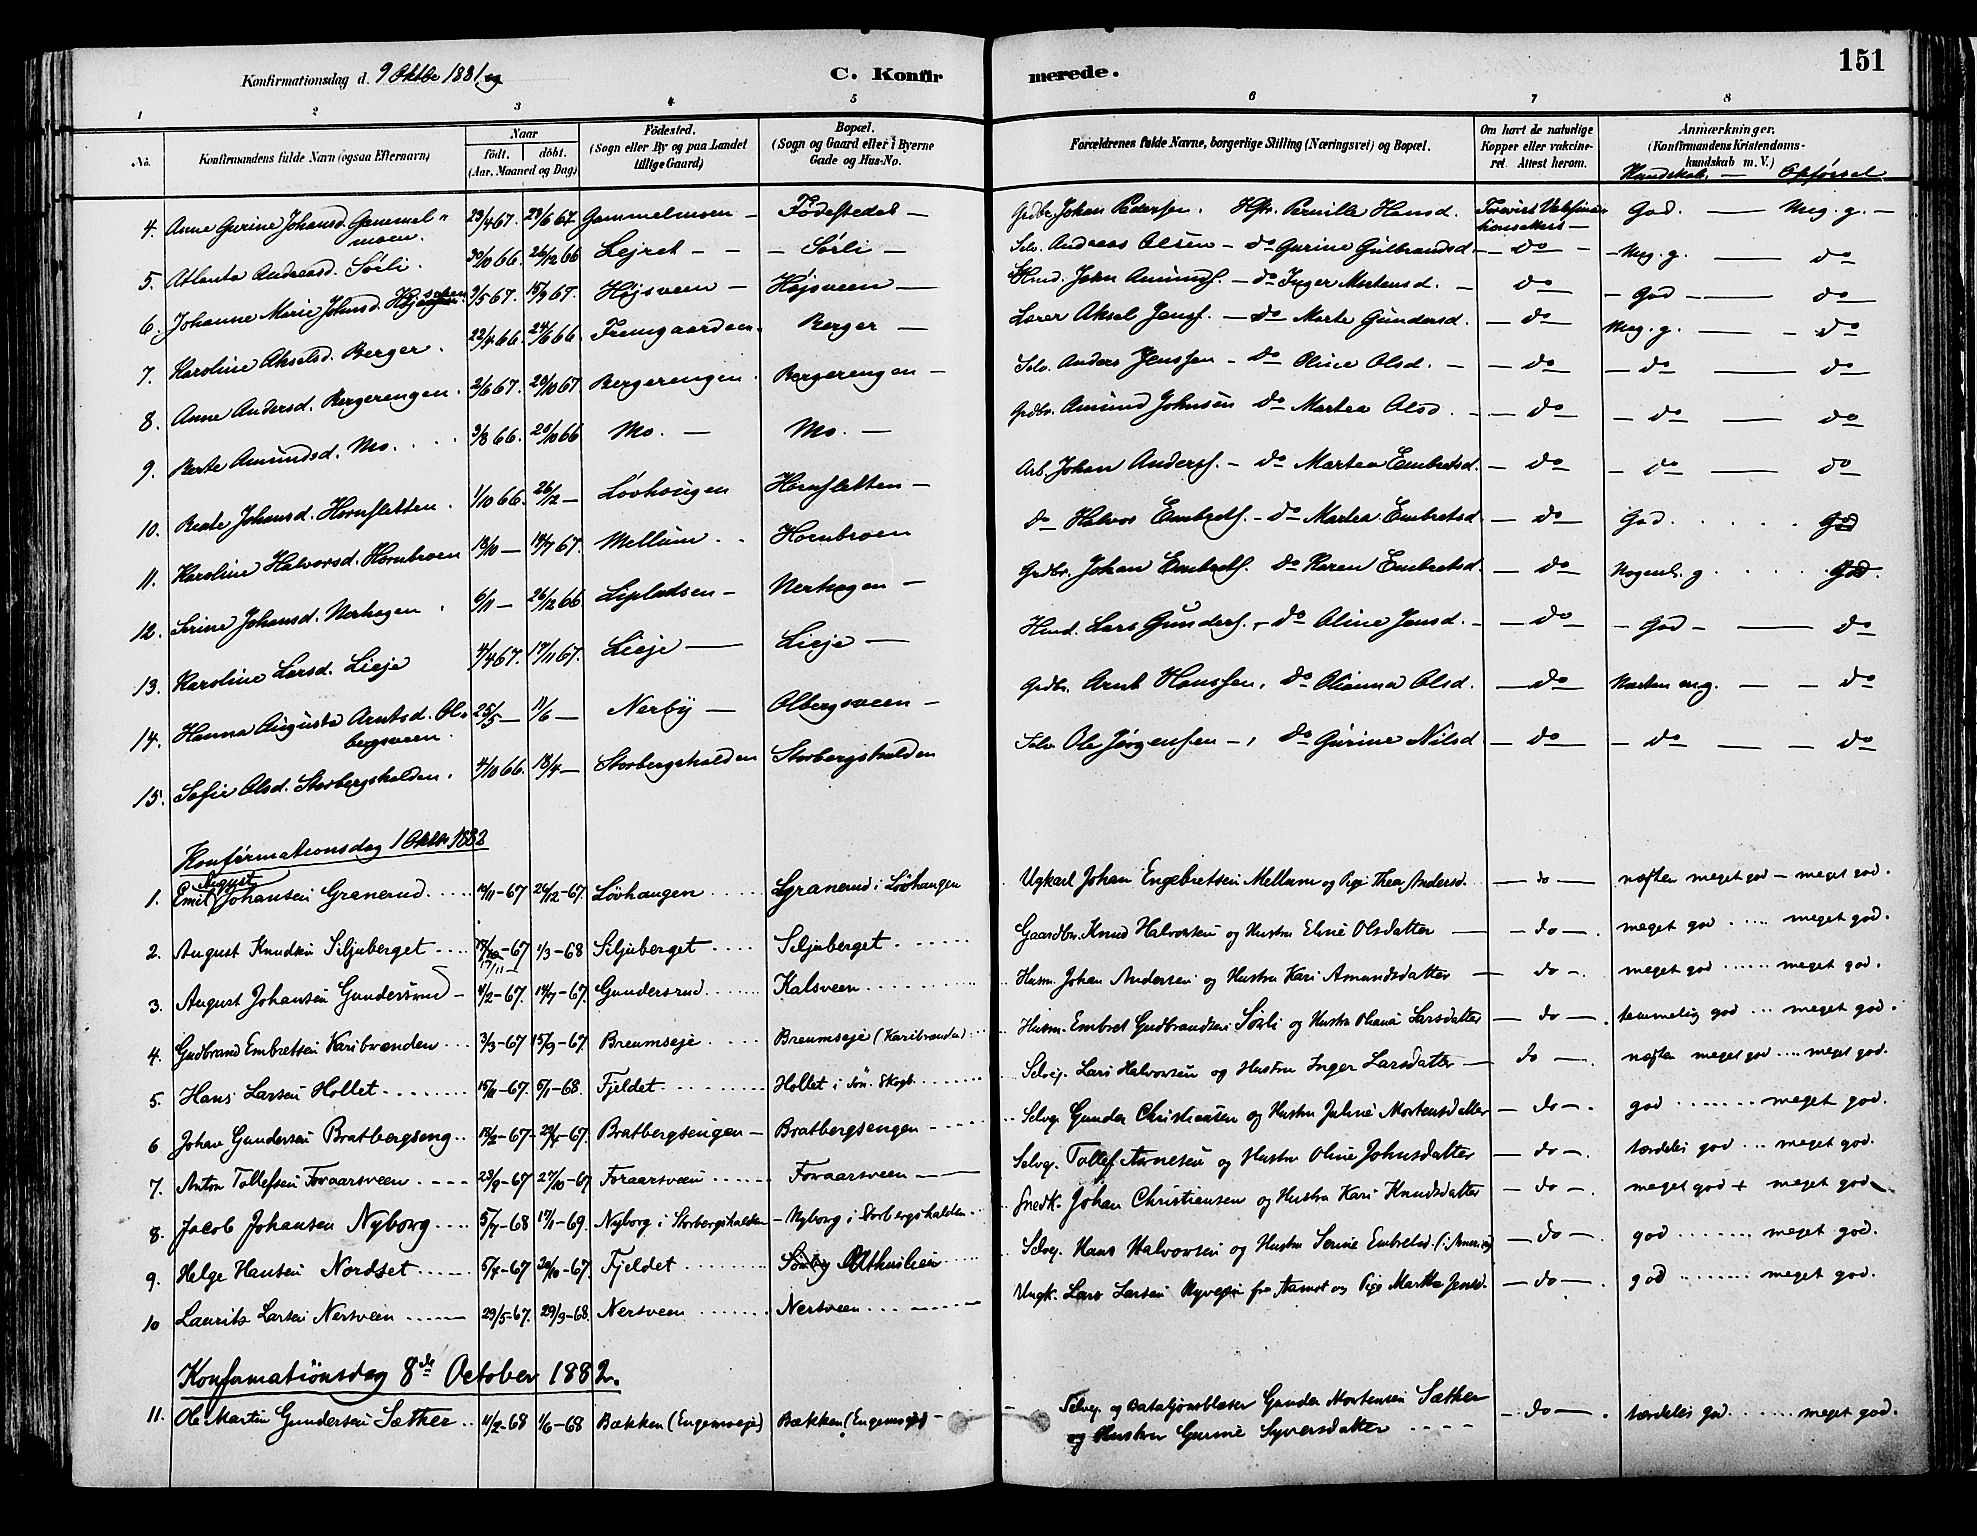 151
Konfirmationsdag d. 9 Oktbr 1881
C. Konfirmerede.
1 2 3 4 5 6 7 8
No. Konfirmandens fulde Navn (ogsaa Efternavn) Naar født. døbt. (Aar, Maaned og Dag) Fødested. (Sogn eller By og paa Landet tillige Gaard) Bopæl. (Sogn og Gaard eller i Byerne Gade og Hus-No. Forældrenes fulde Navne, borgerlige Stilling (Næringsvei) og Bopæl. Om havt de naturlige Kopper eller vakcineret. Attest herom. Anmærkninger. (Konfirmandens Kristendomskundskab m. V.) Kundskab. — Opførsel
4. Anne Gurine Johansd. Gammelmoen. 23/4 67. 23/6 67. Gammelmoen — Fødestedet — Grdbr. Johan Pedersen. Hstr. Pernille Hansd. God. — Meg. g. —
5. Atlanta Andreasd. Sørli. 30/10 66. 26/12 66 Lejret — — Sørli — Selv. Andreas Olsen — do Gurine Gulbrandsd. — do — Meg. g. — do
6. Johanne Marie Johnsd. Højsveen 9/5 67. 15/9 67. Højsveen — Højsveen — Husd. John Amunds. — do Inger Mortensd. — do — God — do
7. Karoline Akselsd. Berger. 22/4 66. 24/6 66. Fremgaarden. Berger — Lærer Aksel Jens. — do Marte Gundersd. — do — Meg. g. — do
8. Anne Andersd. Bergerengen. 2/6 67. 20/10 67. Bergerengen. Bergerengen — Selv. Anders Jenssen — do Oline Olsd. — do — do — do
9. Berte Amundsd. Mo. 9/8 66. 28/10 66 Mo. — Mo. — Grdbr. Amund Johnsen do Martea Olsd. — do — do — do
10. Beate Johansd. Hornsletten. 1/10 66. 26/12 — Løvhaugen Hornsletten — Arb. Johan Anders. — do Martea Embretsd. — do — do — do
11. Karoline Halvorsd. Hornbroen 13/10 — 14/7 67. Mellum Hornbroen do Halvor Embrets. — do Martea Embretsd — do — God. God
12. Serine Johansd. Nerhagen. 6/11 — 26/12 66. Lipladsen — Nerhagen — Grdbr. Johan Embrets. do Karen Embretsd. — do — Nogenl. g. God.
13. Karoline Larsd. Lieje 4/4 67. 17/11 67. Lieje — Lieje — Husd. Lars Gunders. — do Oline Jensd. — do — God — do
14. Hanna Augusta Arntsd. Olbergsveen. 25/5 — 11/6 — Nerby — Olbergsveen — Grdbr. Arnt Hanssen, do Olianna Olsd. — do — Næsten m.g. — do
15. Sofie Olsd. Storbergshalden. 4/10 66. 18/4 — Storbergshalden Storbergshalden Selv. Ole Jørgenssen —, do Gurine Nilsd — do — do — do
Konfirmationsdag 1 Oktbr. 1882
1. Emil August Johansen Granerud. 14/11-67 26/12-67. Løvhaugen Granerud i Løvhaugen Ugkarl Johan Engebretsen Mellum og Pige Thea Andersd. — do — næsten meget god — meget god.
2. August Knudsen Siljuberget 17/11 -67 1/3-68 Siljuberget Siljuberget Gaardbr. Knud Halvorsen og Hustru Eline Olsdatter — do — meget god meget god.
3. August Johansen Gundersrud — 4/2-67. 14/7-67. Gundersrud Kalsveen Husm. Johan Andersen og Hustru Kari Amundsdatter — do — meget god meget god.
4. Gudbrand Embretsen Karibrænden 3/3-67 15/9-67. Breumseje Breumseje (Karibrænden) Husm. Embret Gudbrandsen Sørli og Hustru Oliana Larsdatter — do — temmelig god meget god.
5. Hans Larsen Hollet 15/11-67. 5/1-68. Fjeldet Hollet i Søn. Skogb. Selvej. Lars Halvorsen og Hustru Inger Larsdatter — do — næsten meget god meget god.
6 Johan Gundersen Bratbergseng 13/2-67 Bratbergsengen — Bratbergsengen Selvej. Gunder Christiansen og Hustru Juline Mortensdatter — do — god meget god.
7. Anton Tollefsen Foraarsveen 23/9-67 27/10-67 Foraarsveen Foraarsveen — Selvej. Tollef Arnesen og Hustru Oline Johnsdatter — do — særdeles god meget god.
8. Jacob Johansen Nyborg 5/7-68 17/1-69. Nyborg i Storbergshalden — Nyborg i Storbergshalden Snedk. Johan Christiansen og Hustru Kari Knudsdatter — do — meget god + meget god
9. Helge Hansen Nordset 5/4-67 20/10-67. Fjeldet Athuslien Selvej. Hans Halvorsen og Hustru Serine Embretsd. (i Amerika) — do — god meget god.
10 Laurits Larsen Nersveen 29/5-67. 29/3-68. Nersveen Nersveen Ungk. Lars Larsen fra Aamot og Pige Marthe Jensd. — do — god meget god.
Konfirmationsdag 8de October 1882.
11. Ole Martin Gundersen Sæther 11/2-68 1/6-68 Bækken (Engemseje) Bækken (Engemseje) — Selvej. og Bataljonsblæser Gunder Mortensen Sæther og Hustru Gurine Syversdatter — do — særdeles god meget god.